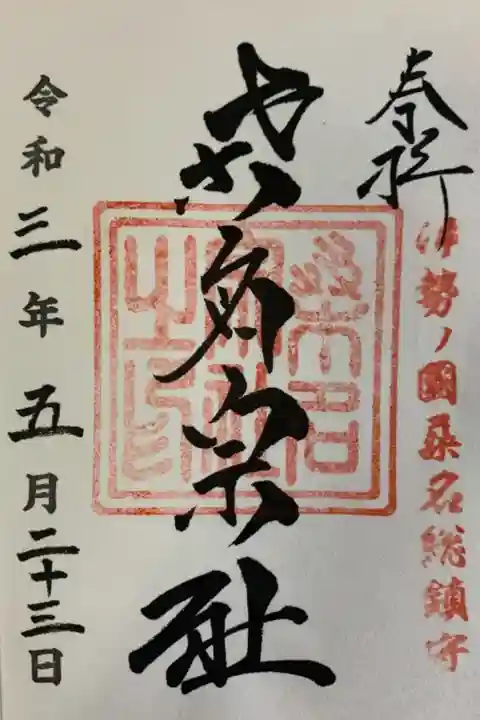 奉拝
伊勢ノ國桒名総鎮守
桒名宗社
令和三年五月二十三日